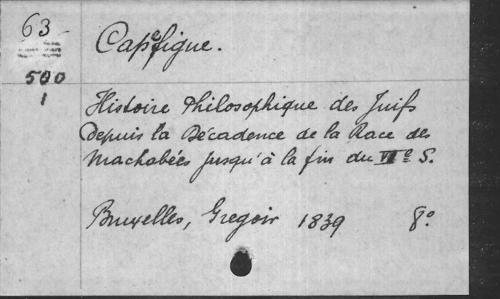 63
Capefigue.
500
1
Histoire Philosophique des Juifs
Depuis la Décadence de la Race des
Machabées jusqu'à la fin du VIe S.
Bruxelles, Gregoir 1839 8o